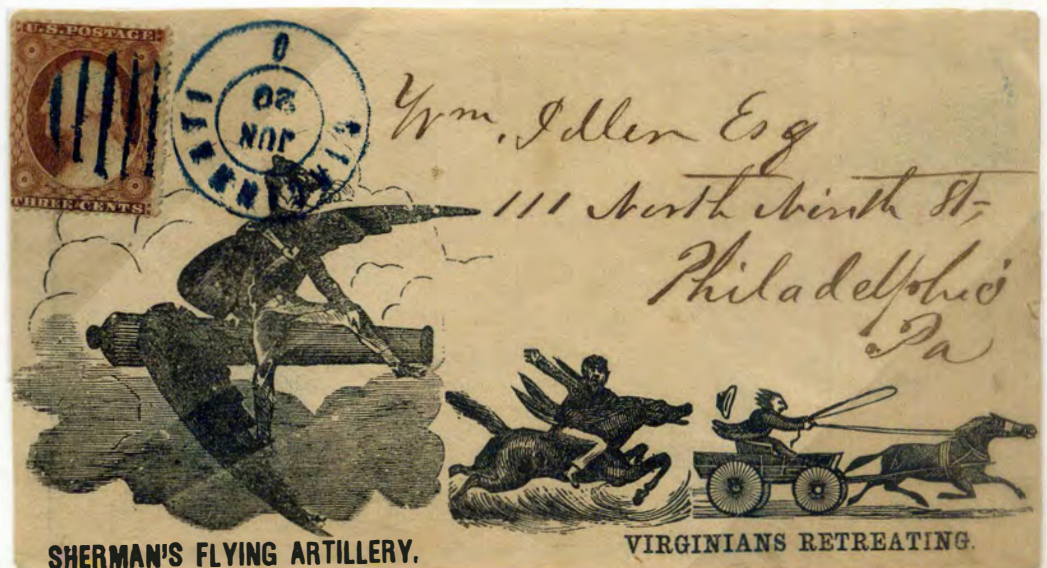 U.S. POSTAGE
THREE CENTS
CINCINNATI
O
20
JUN
Wm. Idler Esq
111 North Ninth St,
Philadelphia
Pa
SHERMAN'S FLYING ARTILLERY.
VIRGINIANS RETREATING.